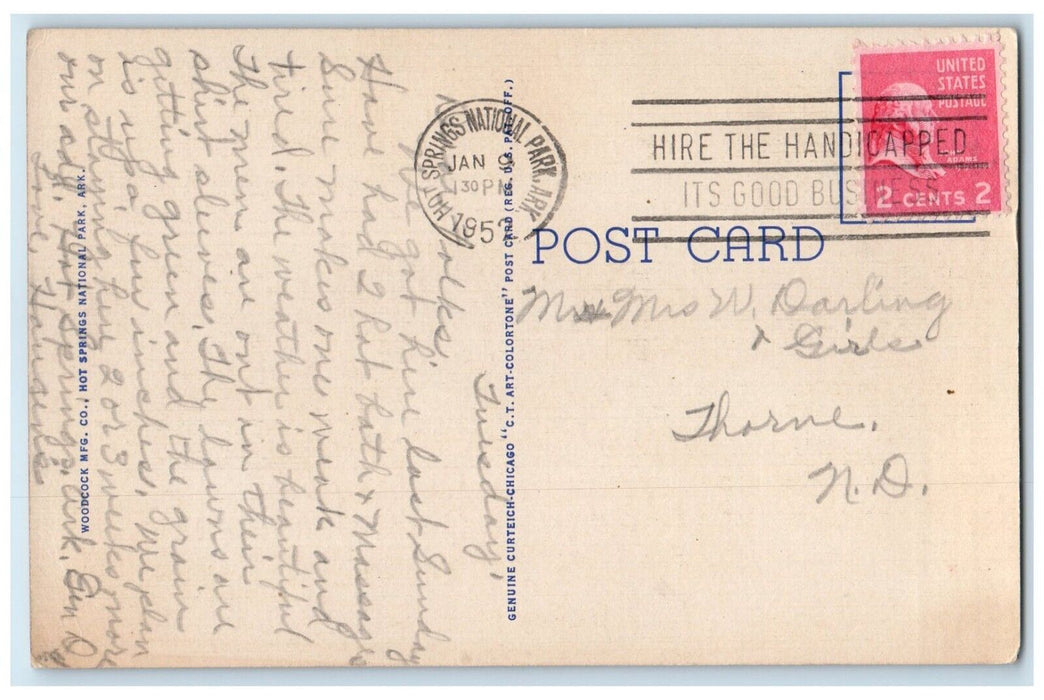 WOODCOCK MFG. CO., HOT SPRINGS NATIONAL PARK, ARK.
Tuesday,
Folks
We got here last Sunday
Have had 2 hot bath & Massage
Sure makes one weak and
tired. The weather is beautiful
The men are out in their
shirt sleeves. The lawns are
getting green and the grain
is up a few inches. We plan
on staying here 2 or 3 weeks more
our ad., Hot Springs, Ark. Gen D
Love,
GENUINE CURTEICH-CHICAGO "C.T. ART-COLORTONE" POST CARD (REG. U.S. PAT. OFF.)
HOT SPRINGS NATIONAL PARK, ARK.
JAN 9
130 PM
1952
HIRE THE HANDICAPPED
ITS GOOD BUSINESS
UNITED
STATES
POSTAGE
ADAMS
2 CENTS 2
POST CARD
Mr & Mrs W. Darling
& Girls
Thorne,
N.D.